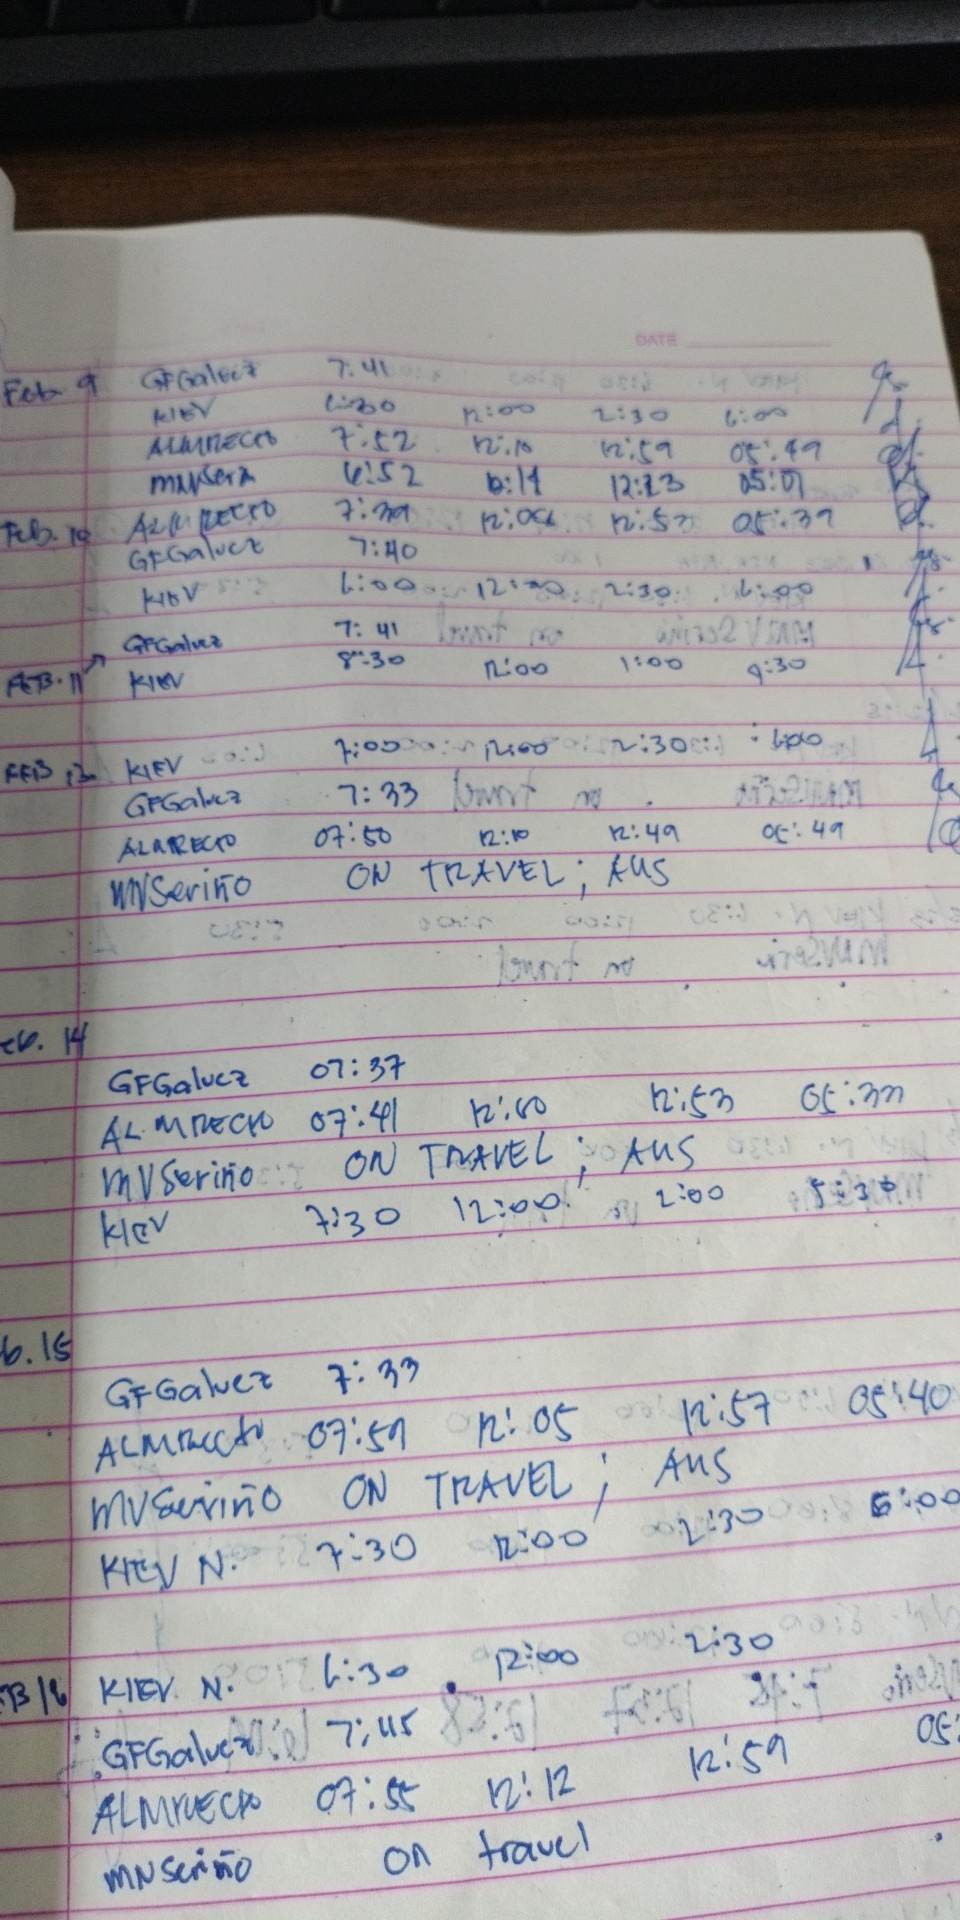 DATE
Feb. 9 GFGalvez 7:41
KIEV 6:30 12:00 2:30 6:00
ALMRECTO 7:52 12:10 12:59 05:49
6:52 12:23 05:01
Feb. 10 ALMRECTO 7:39 12:06 12:53 05:39
GFGalvez 7:40
KIEV 6:00 12:00 2:30 6:00
GFGalvez 7:41
FEB. 11 KIEV 8:30 12:00 1:00 4:30
FEB. 13 KIEV 7:00 12:00 2:30 6:00
GFGalvez 7:33
ALMRECTO 07:50 12:10 12:49 05:49
MVSeriño ON TRAVEL; AUS
eb. 14
GFGalvez 07:37
ALMRECTO 07:41 12:00 12:53 05:33
MVSeriño ON TRAVEL; AUS
KIEV 7:30 12:00 2:00 5:30
b. 15
GFGalvez 7:33
ALMRECTO 07:59 12:05 12:57 05:40
MVSeriño ON TRAVEL; AUS
KIEV N. 7:30 12:00 2:30 6:00
EB 16 KIEV N. 6:30 12:00 2:30
GFGalvez 7:45
ALMRECTO 07:55 12:12 12:59 05:
MNSeriño on travel